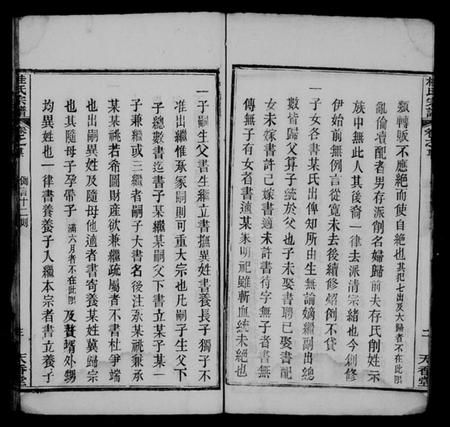 桂氏宗譜
卷之一
二
天香堂
類轉販不應絕而使自絕也其犯七出及大歸者不在此限
亂倫瀆配者男存派削名婦歸前夫存氏削姓示
族中無此人其後裔一律去派清宗緒也今創修
伊始前無例言從寬未去後續修紹例不貸
一子女各書某氏出俾知所由生無論嫡繼副出總
數皆歸父算子統於父也子未娶書聘已娶書
女未嫁書許嫁書適未許書待字無子者書無
傳無子有女者書適某某明祀雖斬血統未絕也
一子嗣生父書生繼立書撫異姓書養長子獨子不
准出繼惟承家嗣則可重大宗也凡嗣子生父下
子總數書迄書子某繼某嗣父下書立某子某一
子兼繼或三繼者嗣子大書名後注承某祧兼承
某某祧若希圖財產欲兼繼疏屬者不書杜弊端
也出嗣異姓及隨母他適者書寄養某姓冀歸宗
也其隨母子孕帶子滿六月者不在此限及贅壻外甥
均異姓也一律書養養子入繼本宗者書立養子
桂氏宗譜
卷之一
天香堂